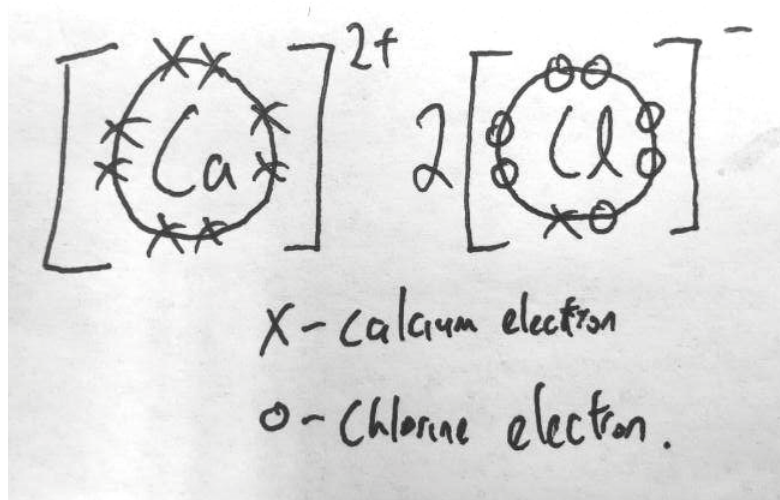 [Ca]2+ 2[Cl]-
X - Calcium electron
o - Chlorine electron.